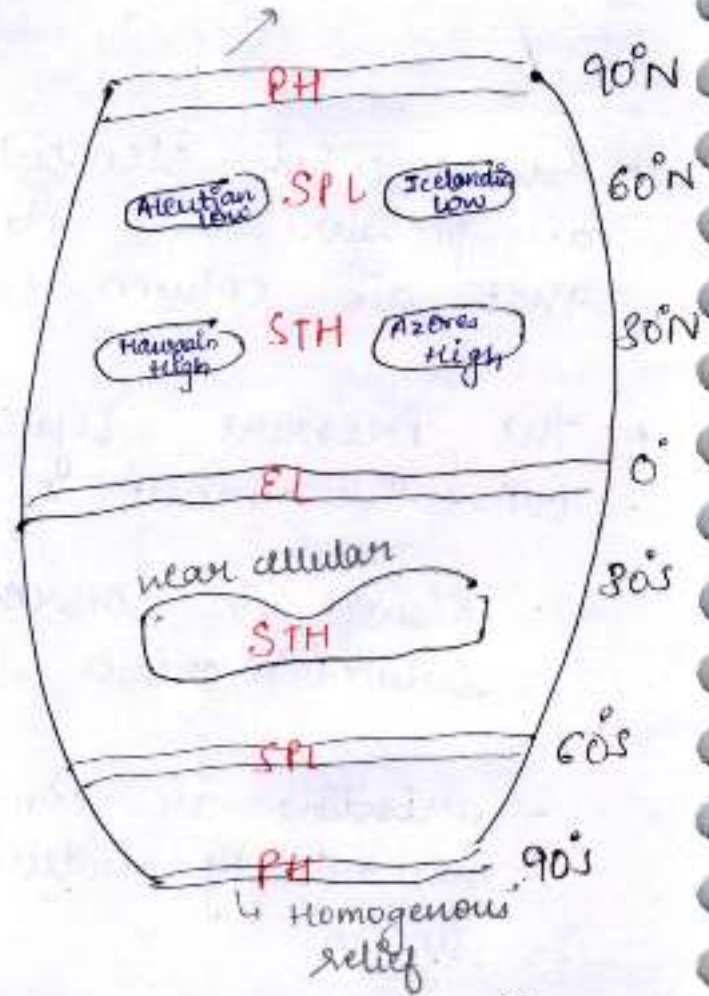 PH 90°N
Aleutian Low SPL Icelandic Low 60°N
Hawaain High STH Azores High 30°N
EL 0°
near cellular 30°S
STH
SPL 60°S
PH 90°S
↳ Homogenous relief.